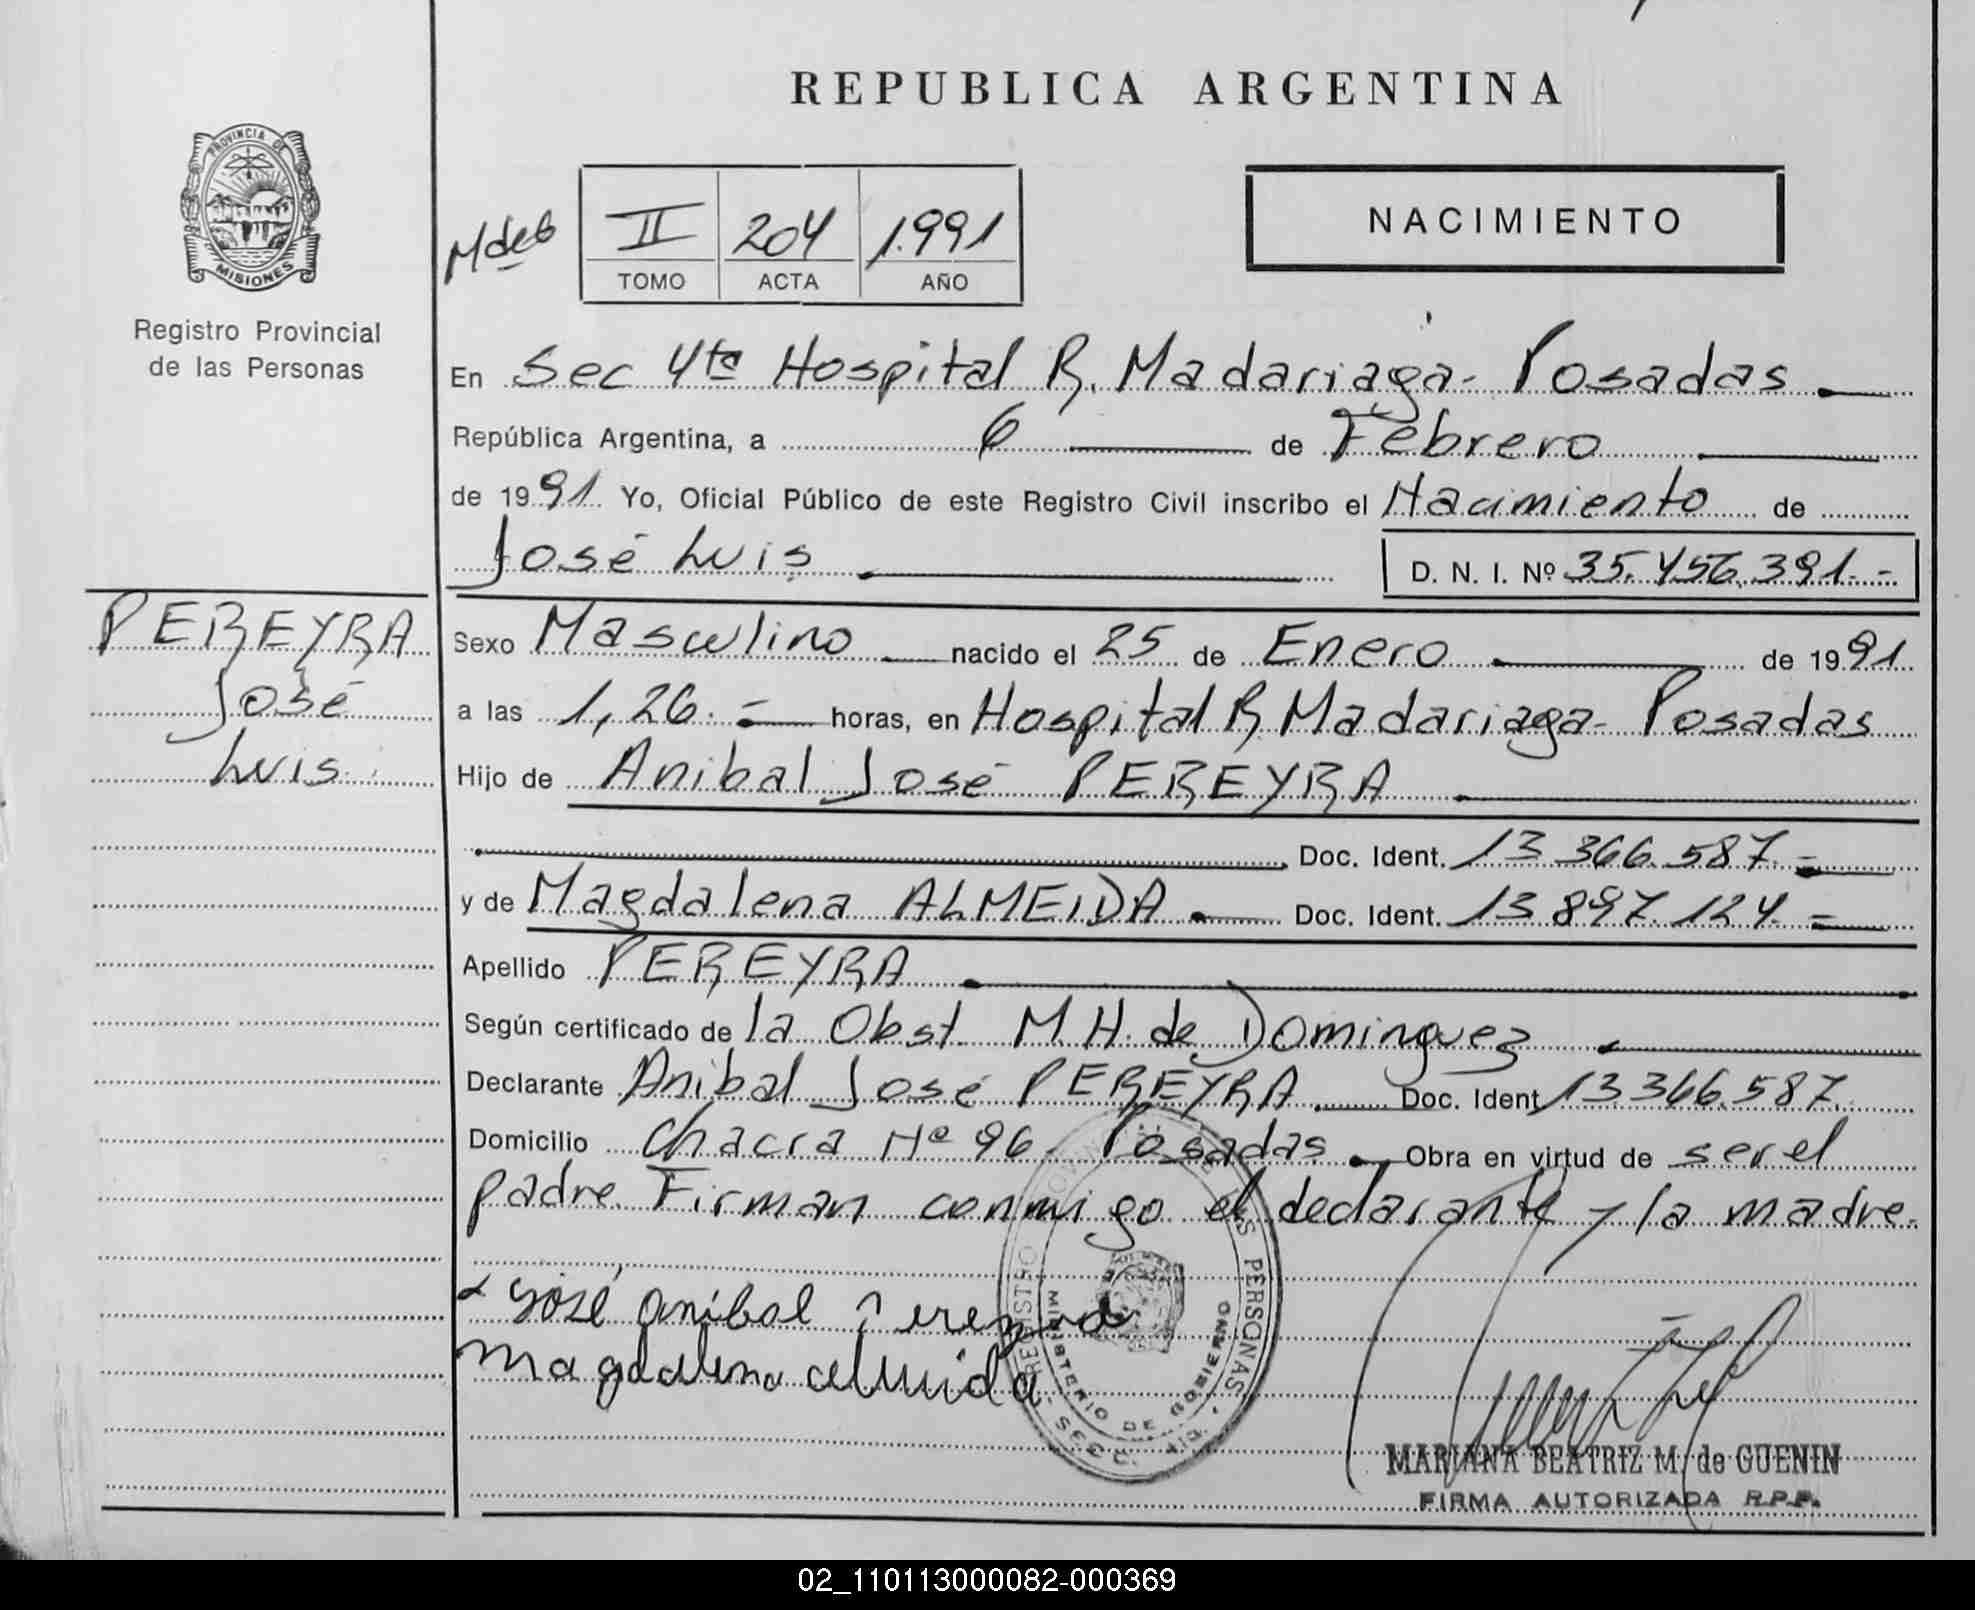 REPUBLICA ARGENTINA
PROVINCIA DE
MISIONES
Registro Provincial
de las Personas
II 204 1.991
TOMO ACTA AÑO
NACIMIENTO
En Sec 4ta Hospital R. Madariaga - Posadas
República Argentina, a 6 de Febrero
de 1991. Yo, Oficial Público de este Registro Civil inscribo el Nacimiento de
José Luis D. N. I. Nº 35.456.391.-
PEREYRA
José
Luis
Sexo Masculino nacido el 25 de Enero de 1991
a las 1,26.- horas, en Hospital R Madariaga - Posadas
Hijo de Anibal José PEREYRA
Doc. Ident. 13 366.587.-
y de Magdalena ALMEIDA. Doc. Ident. 13 897.124.-
Apellido PEREYRA
Según certificado de la Obst. M.H. de Dominguez
Declarante Anibal José PEREYRA Doc. Ident 13.366.587.
Domicilio Chacra Nº 96 - Posadas. Obra en virtud de ser el
padre. Firman conmigo el declarante y la madre.
José anibal Pereyra
magdalena almeida
REGISTRO PROVINCIAL DE LAS PERSONAS
MINISTERIO DE GOBIERNO
MARIANA BEATRIZ M. de GUENIN
FIRMA AUTORIZADA R.P.P.
02_110113000082-000369